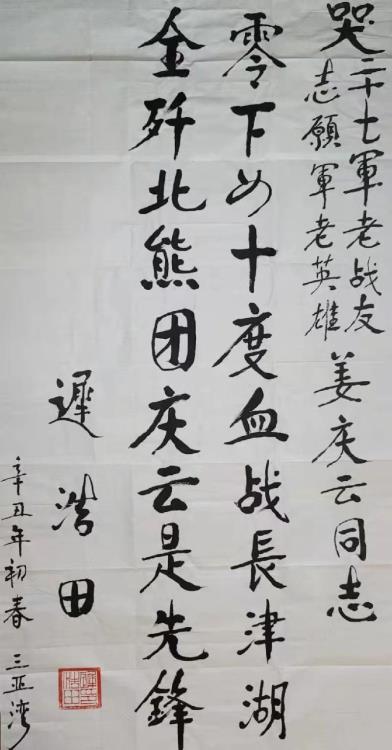 哭二十七軍老战友
志願軍老英雄
姜庆云同志
零下四十度血战長津湖
全歼北熊团庆云是先鋒
遲浩田
辛丑年初春 三亚湾